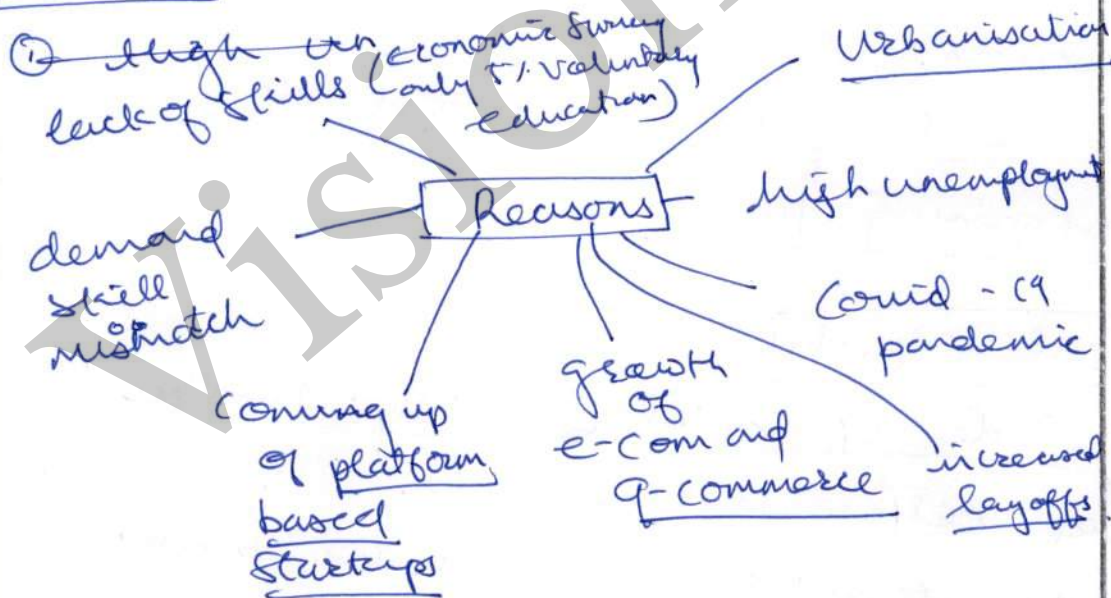 ① High un
lack of skills (Economic Survey
(only 5% voluntary
education)
Urbanisation
Reasons
high unemployment
demand
skill
mismatch
Covid-19
pandemic
coming up
of platform
based
startups
growth
of
e-com and
q-commerce
increased
layoffs
Vision